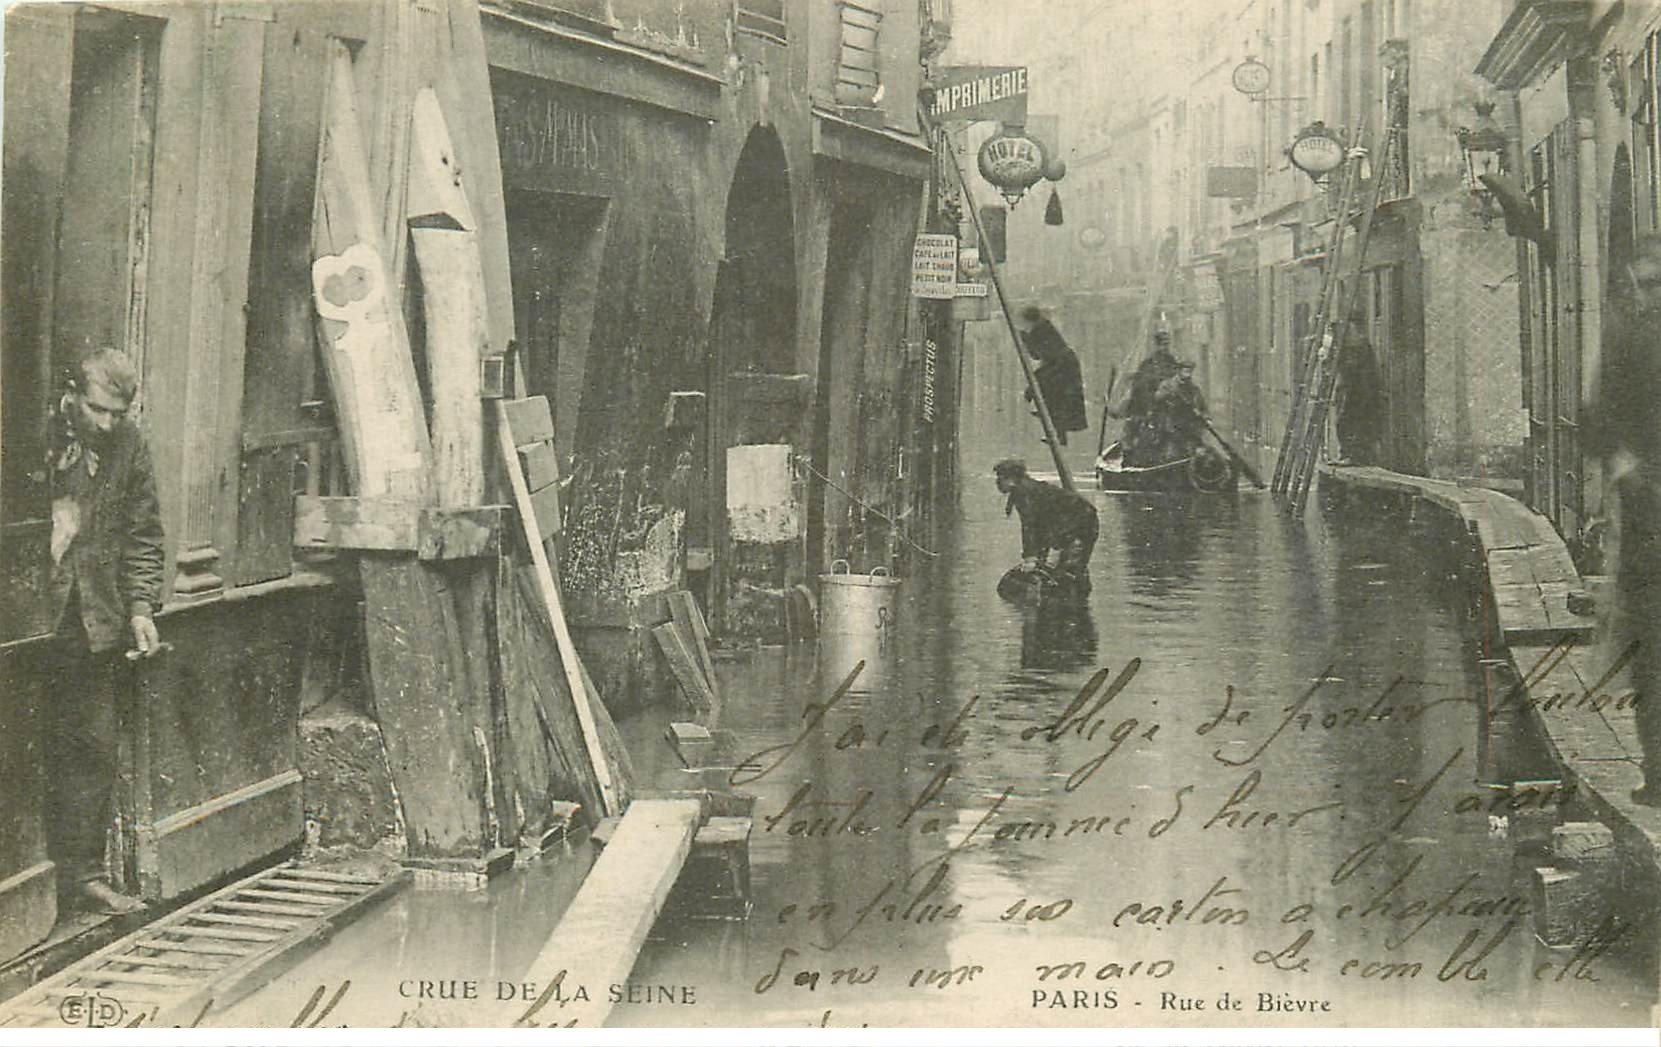 IMPRIMERIE
HOTEL
HOTEL
CHOCOLAT
CAFE AU LAIT
LAIT CHAUD
PETIT NOIR
PROSPECTUS
J'ai été obligé de porter Loulou
toute la journée d'hier. J'avais
en plus son carton a chapeau
dans une main. Le comble elle
CRUE DE LA SEINE
PARIS - Rue de Bièvre
E.L.D